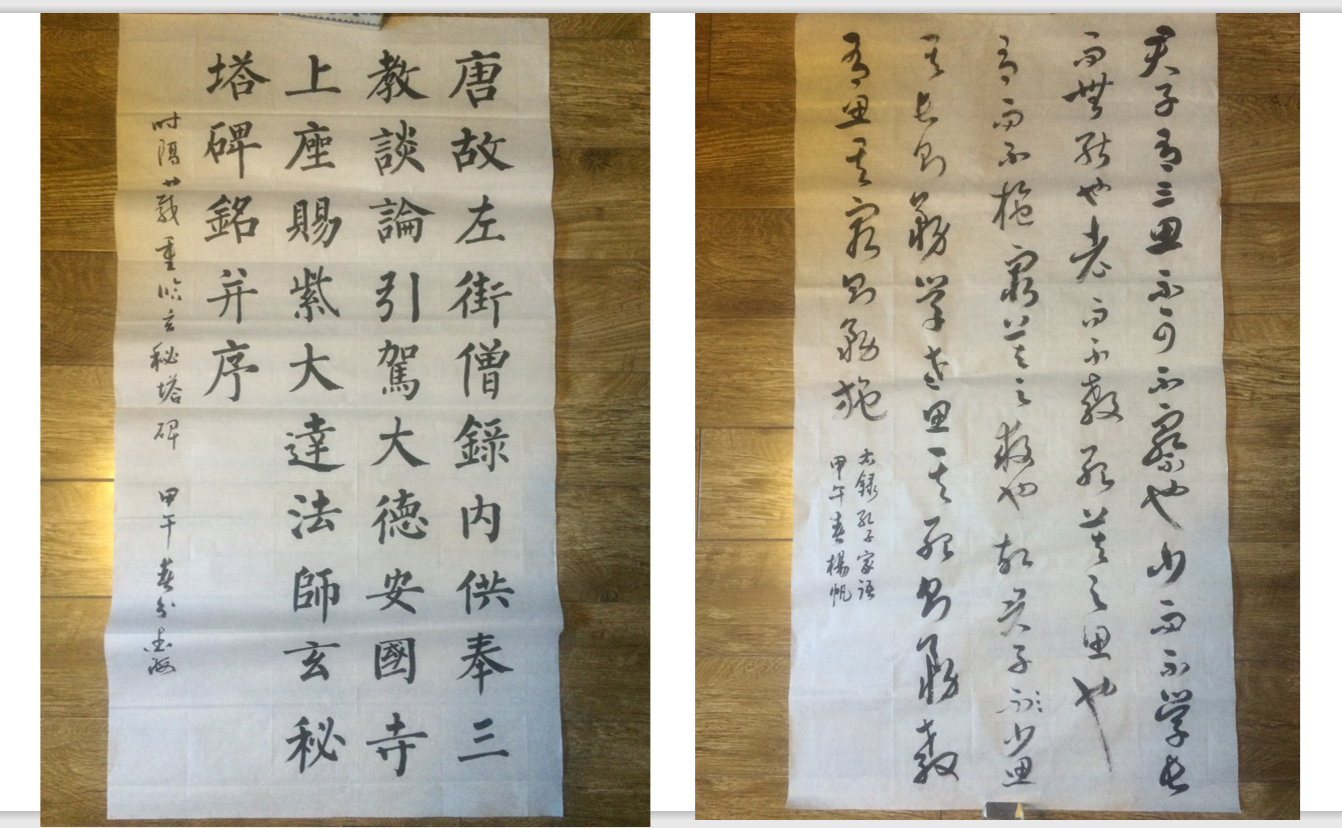 唐故左街僧錄内供奉三
教談論引駕大德安國寺
上座賜紫大達法師玄秘
塔碑銘并序
時隔廿載重臨玄秘塔碑 甲午春分
君子有三思不可不察也少而不学長
而無能也老而不教死莫之思也
有而不施窮莫之救也故君子不少思
其長則務学老思其死則務教
有思其窮則務施
右錄孔子家語
甲午春楊帆